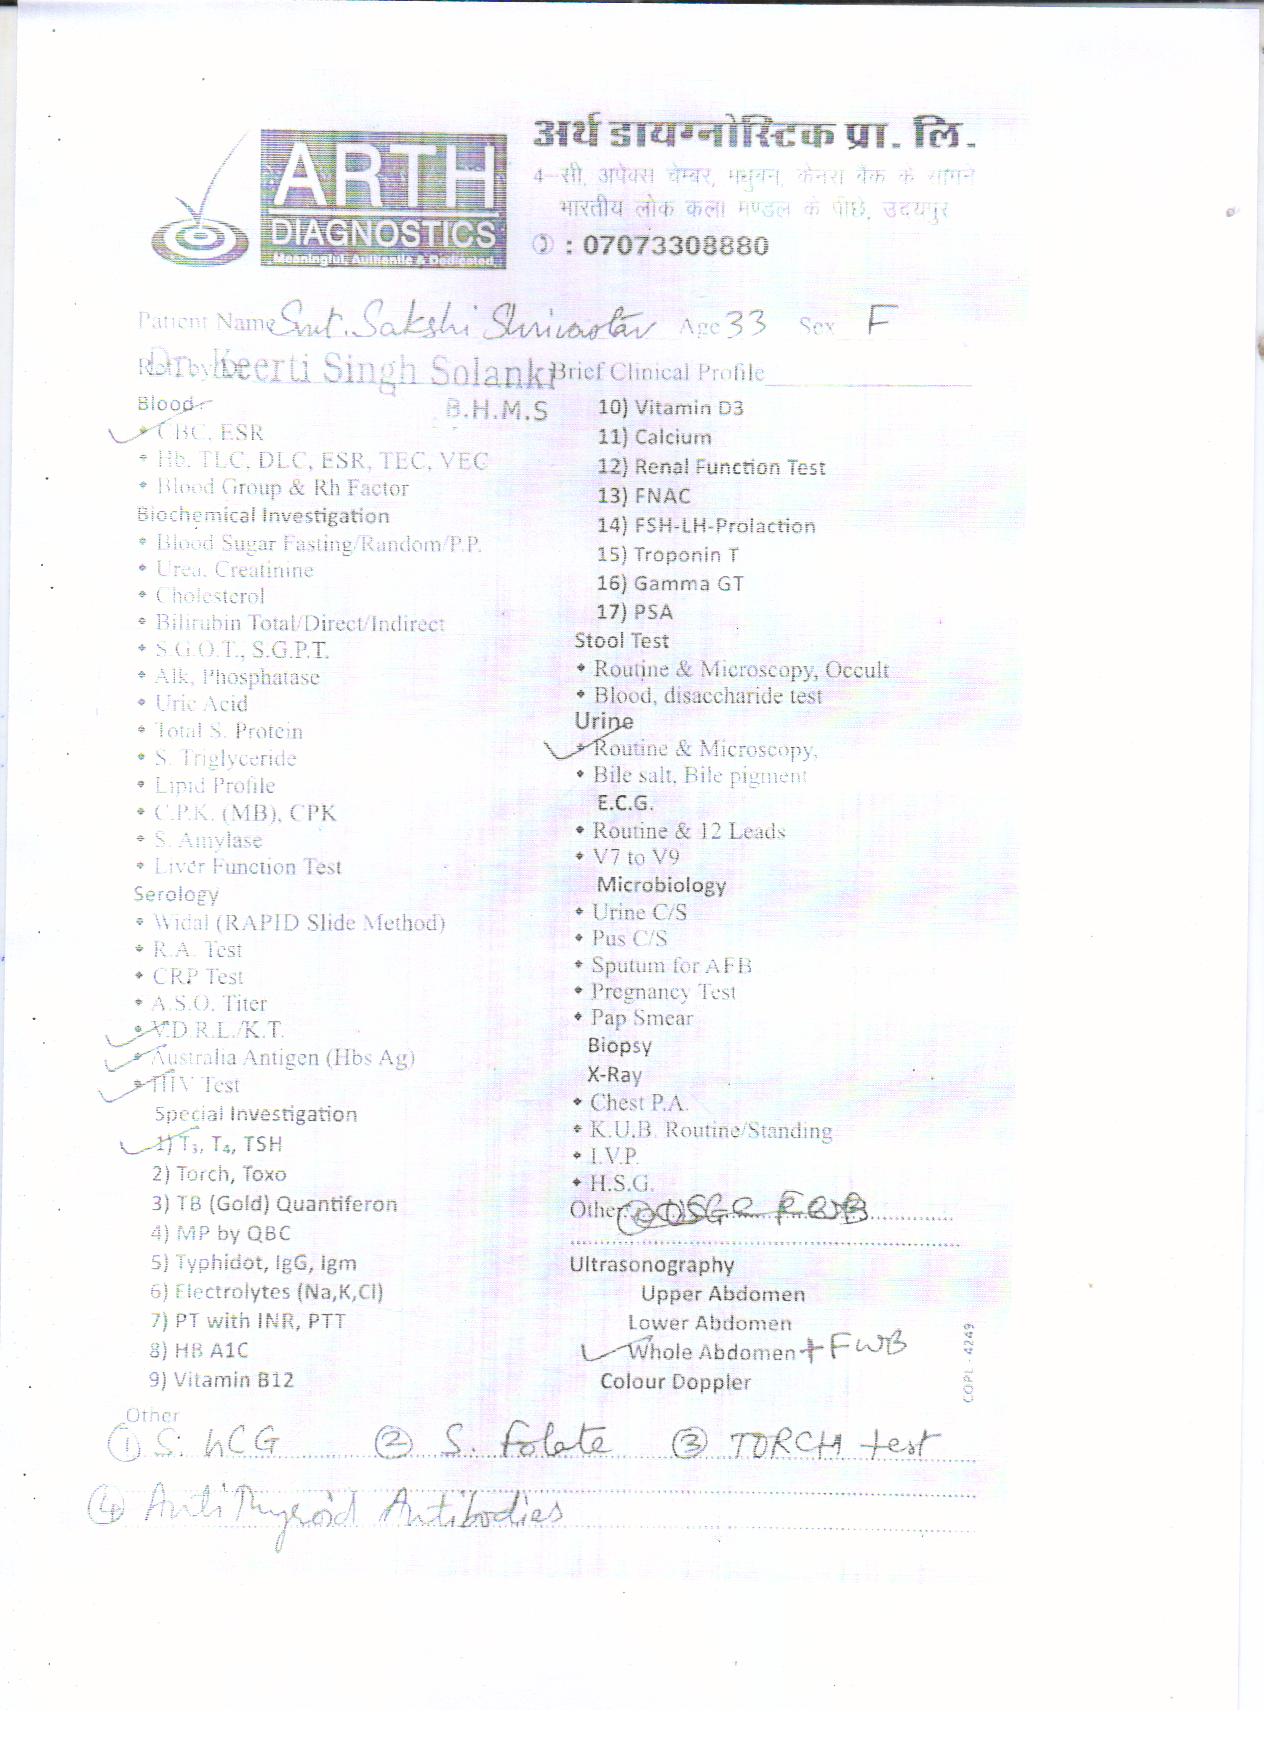 ARTH
DIAGNOSTICS
Meaningful, Authentic & Dedicated
अर्थ डायग्नोस्टिक प्रा. लि.
4-सी, आपेक्स चेम्बर, मधुबन, केनरा बैंक के सामने
भारतीय लोक कला मण्डल के पीछे, उदयपुर
: 07073308880
Patient Name Smt. Sakshi Shrivastav Age 33 Sex F
Ref. by Dr. Keerti Singh Solanki Brief Clinical Profile
B.H.M.S
Blood :
• CBC, ESR
• Hb, TLC, DLC, ESR, TEC, VEC
• Blood Group & Rh Factor
Biochemical Investigation
• Blood Sugar Fasting/Random/P.P.
• Urea, Creatinine
• Cholesterol
• Bilirubin Total/Direct/Indirect
• S.G.O.T., S.G.P.T.
• Alk, Phosphatase
• Uric Acid
• Total S. Protein
• S. Triglyceride
• Lipid Profile
• C.P.K. (MB), CPK
• S. Amylase
• Liver Function Test
Serology
• Widal (RAPID Slide Method)
• R.A. Test
• CRP Test
• A.S.O. Titer
• V.D.R.L./K.T.
• Australia Antigen (Hbs Ag)
• HIV Test
Special Investigation
1) T3, T4, TSH
2) Torch, Toxo
3) TB (Gold) Quantiferon
4) MP by QBC
5) Typhidot, IgG, Igm
6) Electrolytes (Na,K,Cl)
7) PT with INR, PTT
8) HB A1C
9) Vitamin B12
10) Vitamin D3
11) Calcium
12) Renal Function Test
13) FNAC
14) FSH-LH-Prolaction
15) Troponin T
16) Gamma GT
17) PSA
Stool Test
• Routine & Microscopy, Occult
• Blood, disaccharide test
Urine
• Routine & Microscopy,
• Bile salt, Bile pigment
E.C.G.
• Routine & 12 Leads
• V7 to V9
Microbiology
• Urine C/S
• Pus C/S
• Sputum for AFB
• Pregnancy Test
• Pap Smear
Biopsy
X-Ray
• Chest P.A.
• K.U.B. Routine/Standing
• I.V.P.
• H.S.G.
Other
Ultrasonography
Upper Abdomen
Lower Abdomen
Whole Abdomen + FWB
Colour Doppler
COPL - 4249
Other
① S. hCG ② S. Folate ③ TORCH test
④ Anti Thyroid Antibodies